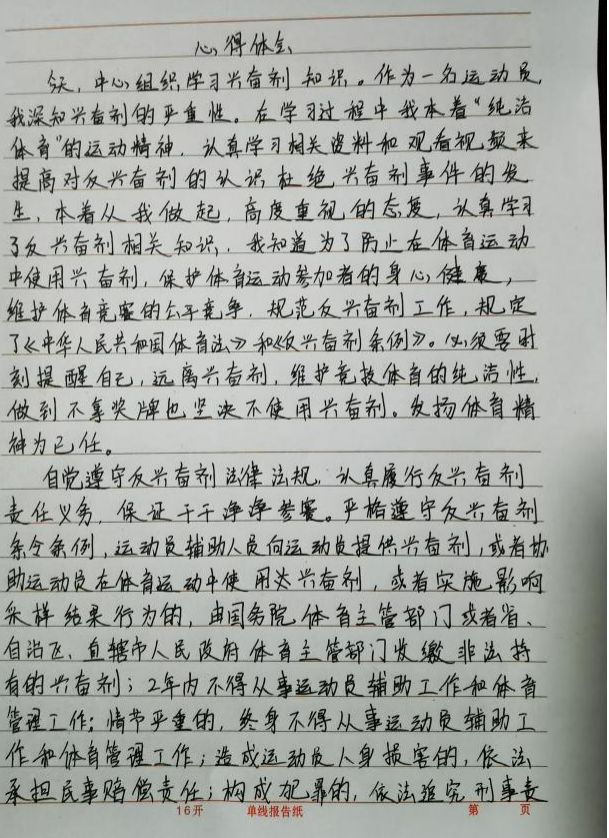 心得体会
今天,中心组织学习兴奋剂知识。作为一名运动员,
我深知兴奋剂的严重性。在学习过程中我本着“纯洁
体育”的运动精神,认真学习相关资料和观看视频来
提高对反兴奋剂的认识杜绝兴奋剂事件的发
生,本着从我做起,高度重视的态度,认真学习
了反兴奋剂相关知识,我知道为了防止在体育运动
中使用兴奋剂,保护体育运动参加者的身心健康,
维护体育竞赛的公平竞争,规范反兴奋剂工作,规定
了《中华人民共和国体育法》和《反兴奋剂条例》。必须要时
刻提醒自己,远离兴奋剂,维护竞技体育的纯洁性,
做到不拿奖牌也坚决不使用兴奋剂。发扬体育精
神为己任。
自觉遵守反兴奋剂法律法规,认真履行反兴奋剂
责任义务,保证干干净净参赛。严格遵守反兴奋剂
条令条例,运动员辅助人员向运动员提供兴奋剂,或者协
助运动员在体育运动中使用兴奋剂,或者实施影响
采样结果行为的,由国务院体育主管部门或者省、
自治区、直辖市人民政府体育主管部门收缴非法持
有的兴奋剂;2年内不得从事运动员辅助工作和体育
管理工作;情节严重的,终身不得从事运动员辅助工
作和体育管理工作;造成运动员人身损害的,依法
承担民事赔偿责任;构成犯罪的,依法追究刑事责
16开 单线报告纸 第 页